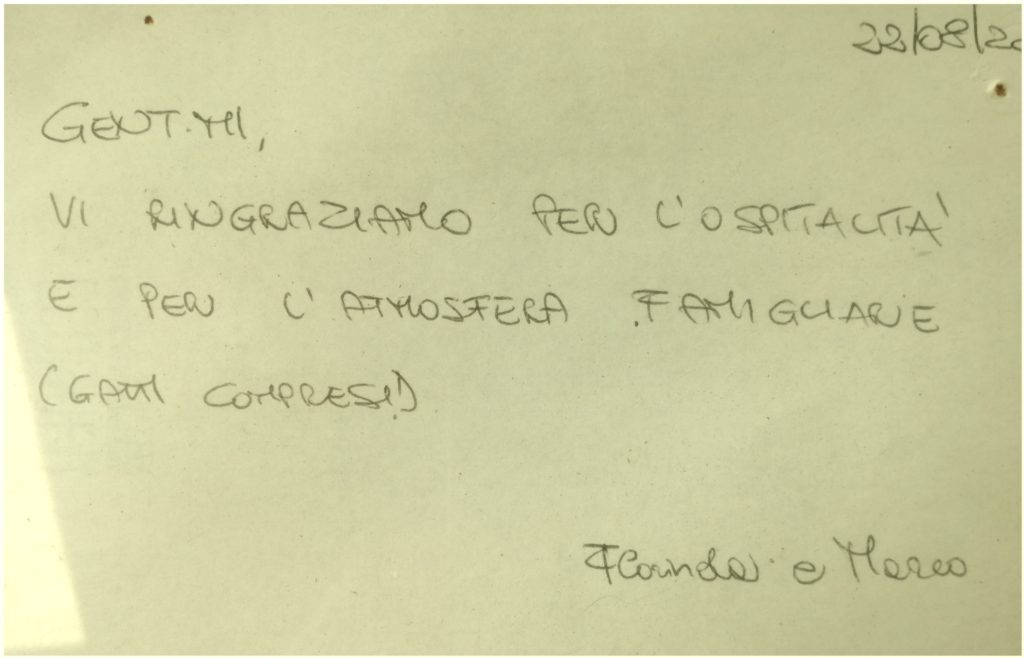 22/08/20
GENT.MI,
VI RINGRAZIAMO PER L'OSPITALITA'
E PER L'ATMOSFERA FAMIGLIARE
(GATTI COMPRESI!)
e Marco